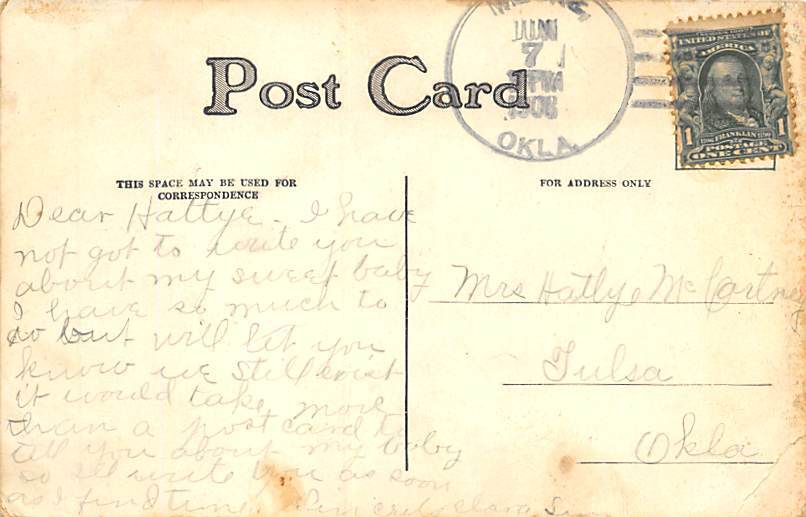 JUN
7
PM
1908
OKLA.
UNITED STATES OF
AMERICA
1 FRANKLIN 1
POSTAGE
ONE CENT
Post Card
THIS SPACE MAY BE USED FOR
CORRESPONDENCE
FOR ADDRESS ONLY
Dear Hattye - I have
not got to write you
about my sweet baby
I have so much to
do but will let you
know we still exist
it would take more
than a post card to
tell you about my baby
so I'll write you as soon
as I find time. Sincerely Clara
Mrs Hattye McCartney
Tulsa
Okla